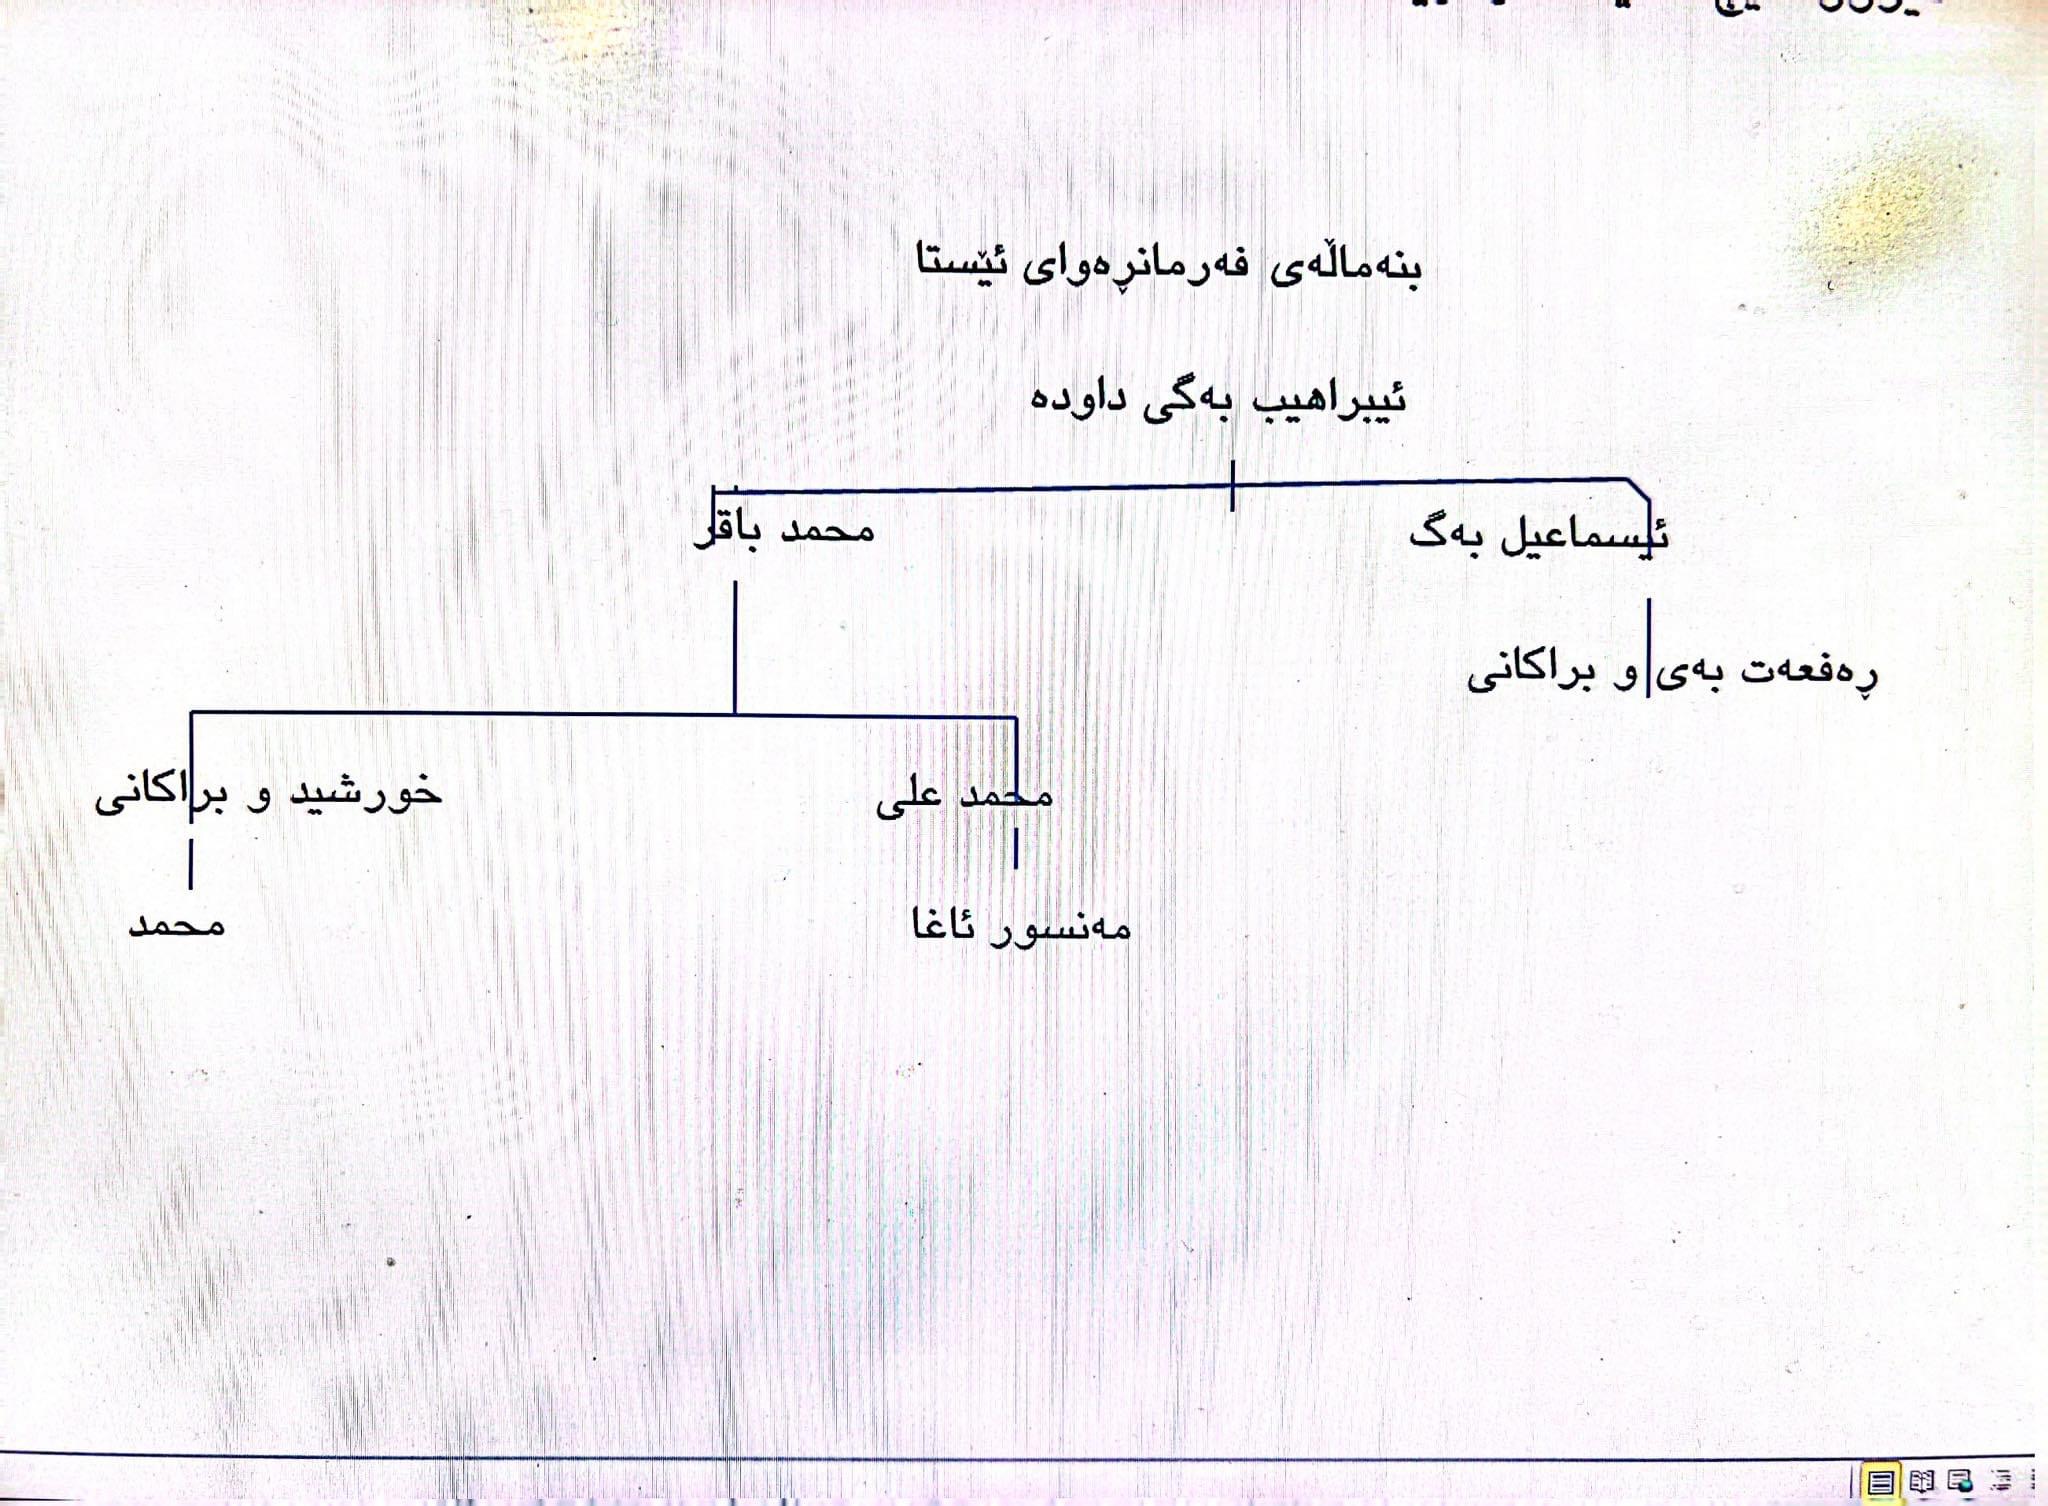 بنەماڵەی فەرمانڕەوای ئێستا
ئیبراهیب بەگی داودە
ئیسماعیل بەگ
محمد باقر
ڕەفعەت بەی و براکانی
محمد علی
خورشید و براکانی
مەنسور ئاغا
محمد